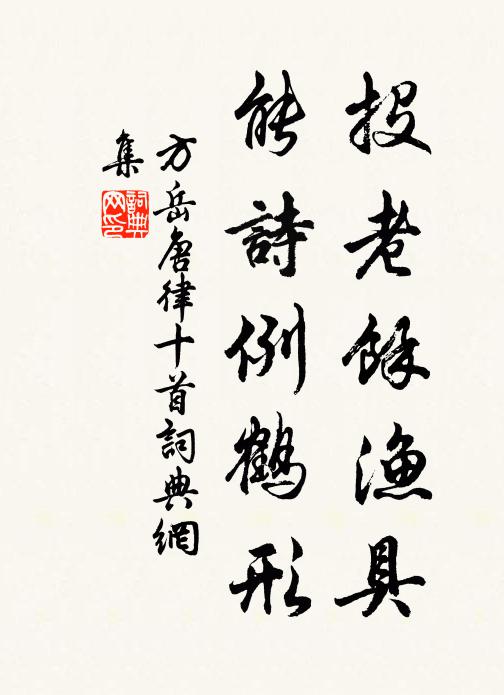 投老餘漁具
能詩例鶴形
方岳唐律十首詞典網
集
詞典
网印